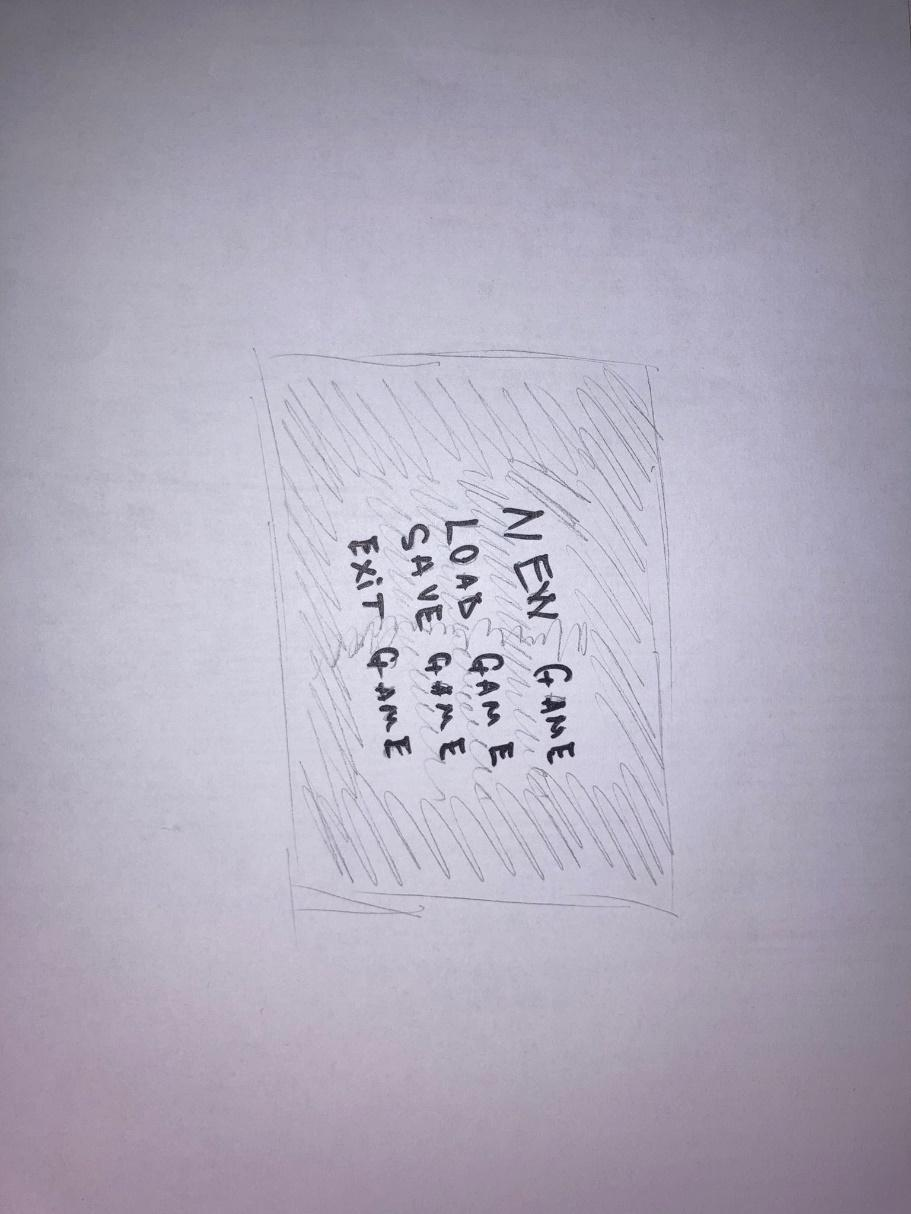 NEW GAME
LOAD GAME
SAVE GAME
EXiT GAME